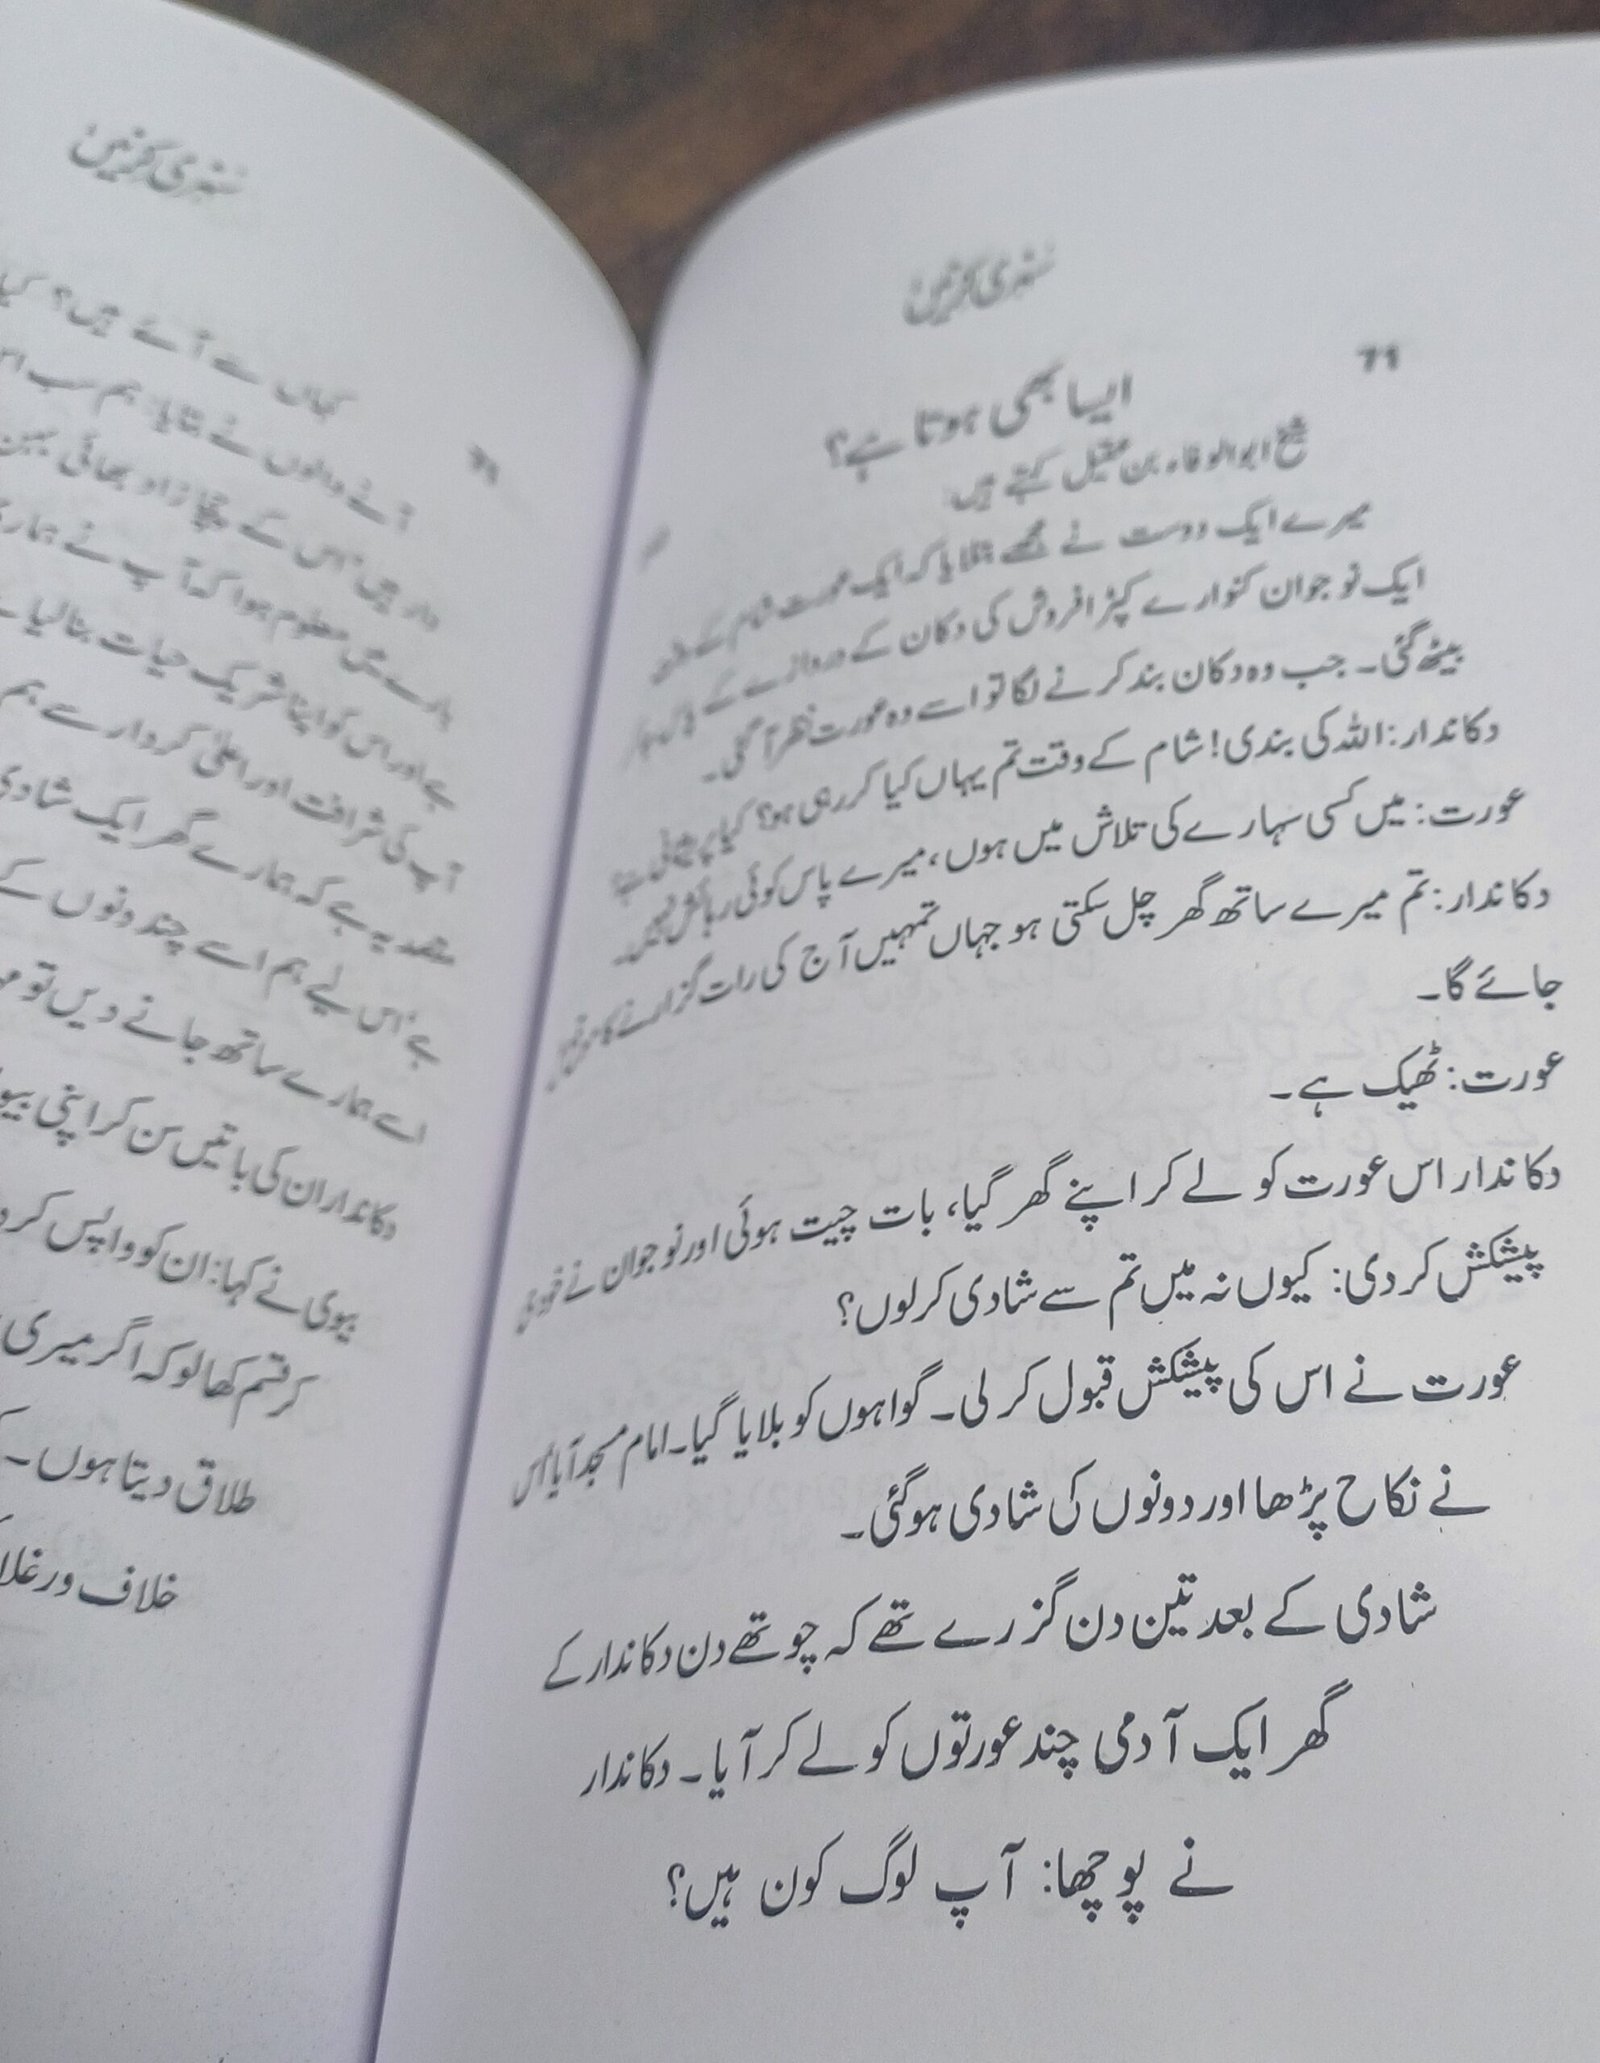 سنہری کرنیں
71
ایسا بھی ہوتا ہے؟
شیخ ابوالوفاء بن عقیل کہتے ہیں:
میرے ایک دوست نے مجھے بتلایا کہ ایک عورت شام کے وقت
ایک نوجوان کنوارے کپڑا فروش کی دکان کے دروازے کے پاس آکر
بیٹھ گئی۔ جب وہ دکان بند کرنے لگا تو اسے وہ عورت نظر آ گئی۔
دکاندار: اللہ کی بندی! شام کے وقت تم یہاں کیا کر رہی ہو؟ کیا پریشانی ہے؟
عورت: میں کسی سہارے کی تلاش میں ہوں، میرے پاس کوئی رہائش نہیں۔
دکاندار: تم میرے ساتھ گھر چل سکتی ہو جہاں تمہیں آج کی رات گزارنے کا موقع
جائے گا۔
عورت: ٹھیک ہے۔
دکاندار اس عورت کو لے کر اپنے گھر گیا، بات چیت ہوئی اور نوجوان نے خود ہی
پیشکش کر دی: کیوں نہ میں تم سے شادی کر لوں؟
عورت نے اس کی پیشکش قبول کر لی۔ گواہوں کو بلایا گیا۔ امام مسجد آیا اس
نے نکاح پڑھا اور دونوں کی شادی ہوگئی۔
شادی کے بعد تین دن گزرے تھے کہ چوتھے دن دکاندار کے
گھر ایک آدمی چند عورتوں کو لے کر آیا۔ دکاندار
نے پوچھا: آپ لوگ کون ہیں؟
سنہری کرنیں
کہاں سے آئے ہیں؟ کیا
آنے والوں نے بتایا: ہم سب اس
دار ہیں، اس کے چچا زاد بھائی بہن
بارے میں معلوم ہوا کہ آپ نے ہماری
ہے اور اس کو اپنا شریک حیات بنا لیا
آپ کی شرافت اور اعلیٰ کردار سے ہم
مقصد یہ ہے کہ ہمارے گھر ایک شادی
ہے، اس لیے ہم اسے چند دنوں کے
اسے ہمارے ساتھ جانے دیں تو
دکاندار ان کی باتیں سن کر اپنی
بیوی نے کہا: ان کو واپس کر
کر قسم کھا لو کہ اگر میری
طلاق دیتا ہوں۔
خلاف ورغلا